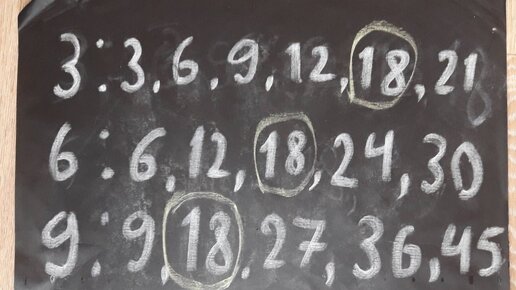 3:3,6,9,12,18,21
6:6,12,18,24,30
9:9,18,27,36,45